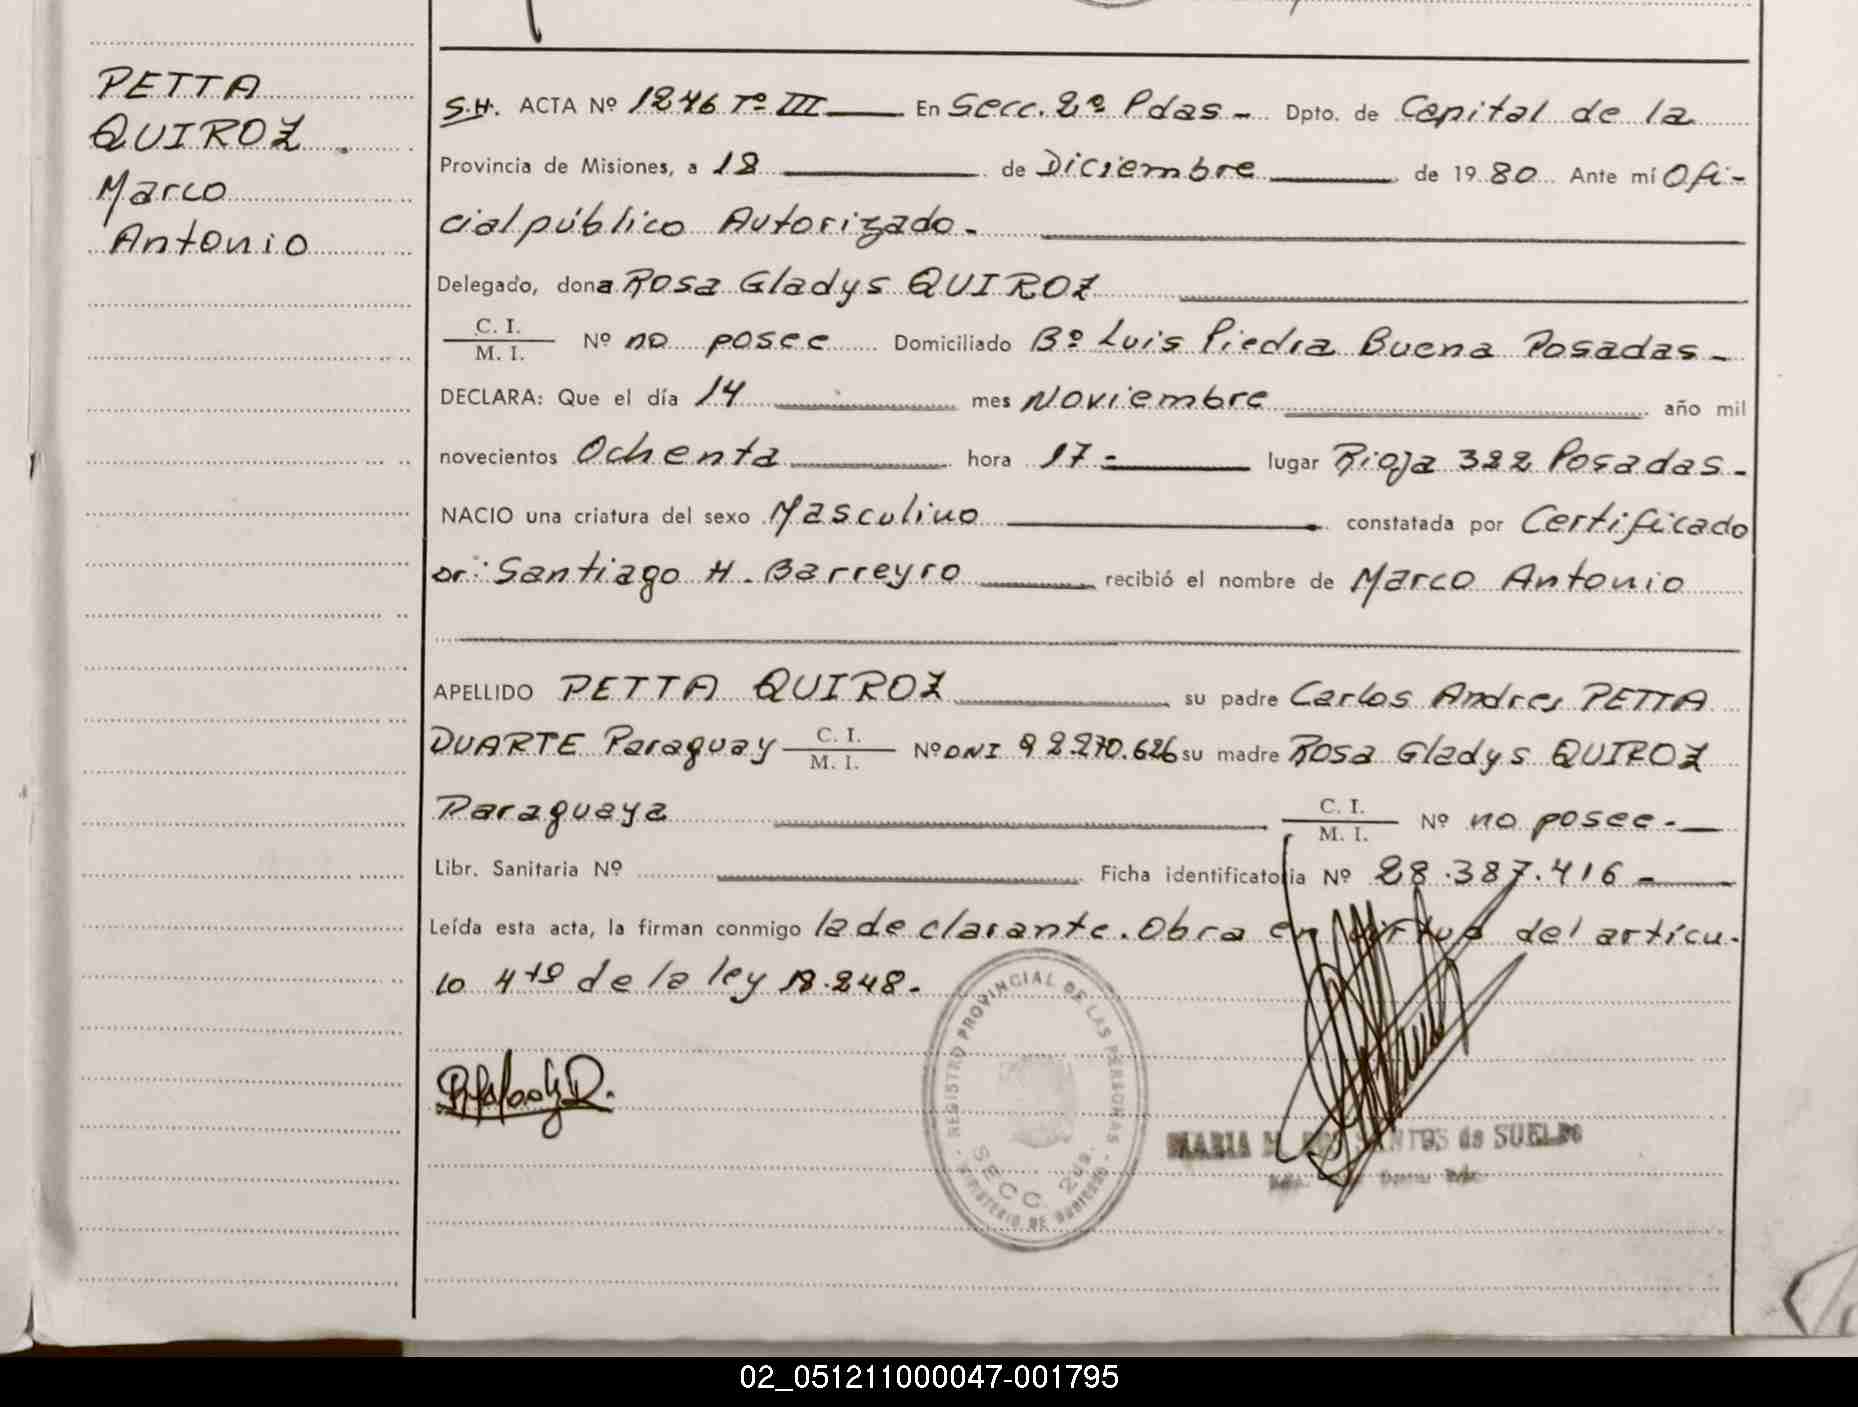 PETTA
QUIROZ.
Marco
Antonio
S.H. ACTA Nº 1246 Tº III En Secc. 2º Pdas - Dpto. de Capital de la
Provincia de Misiones, a 18 de Diciembre de 1980 Ante mí Ofi-
cial público Autorizado.
Delegado, dona Rosa Gladys QUIROZ
C. I.
M. I. Nº no posee Domiciliado Bº Luis Piedra Buena Posadas -
DECLARA: Que el día 14 mes Noviembre año mil
novecientos Ochenta hora 17- lugar Rioja 322 Posadas -
NACIO una criatura del sexo Masculino constatada por Certificado
Dr: Santiago H. Barreyro recibió el nombre de Marco Antonio
APELLIDO PETTA QUIROZ su padre Carlos Andres PETTA
DUARTE Paraguay C. I.
M. I. Nº DNI 92.270.626 su madre Rosa Gladys QUIROZ
Paraguaya C. I.
M. I. Nº no posee -
Libr. Sanitaria Nº Ficha identificatoria Nº 28.387.416 -
Leída esta acta, la firman conmigo la declarante. Obra en virtud del articu-
lo 4to de la ley 18.248.
REGISTRO PROVINCIAL DE LAS PERSONAS
SECC. 2da.
MINISTERIO DE
MARIA SANTOS de SUELDO
02_051211000047-001795